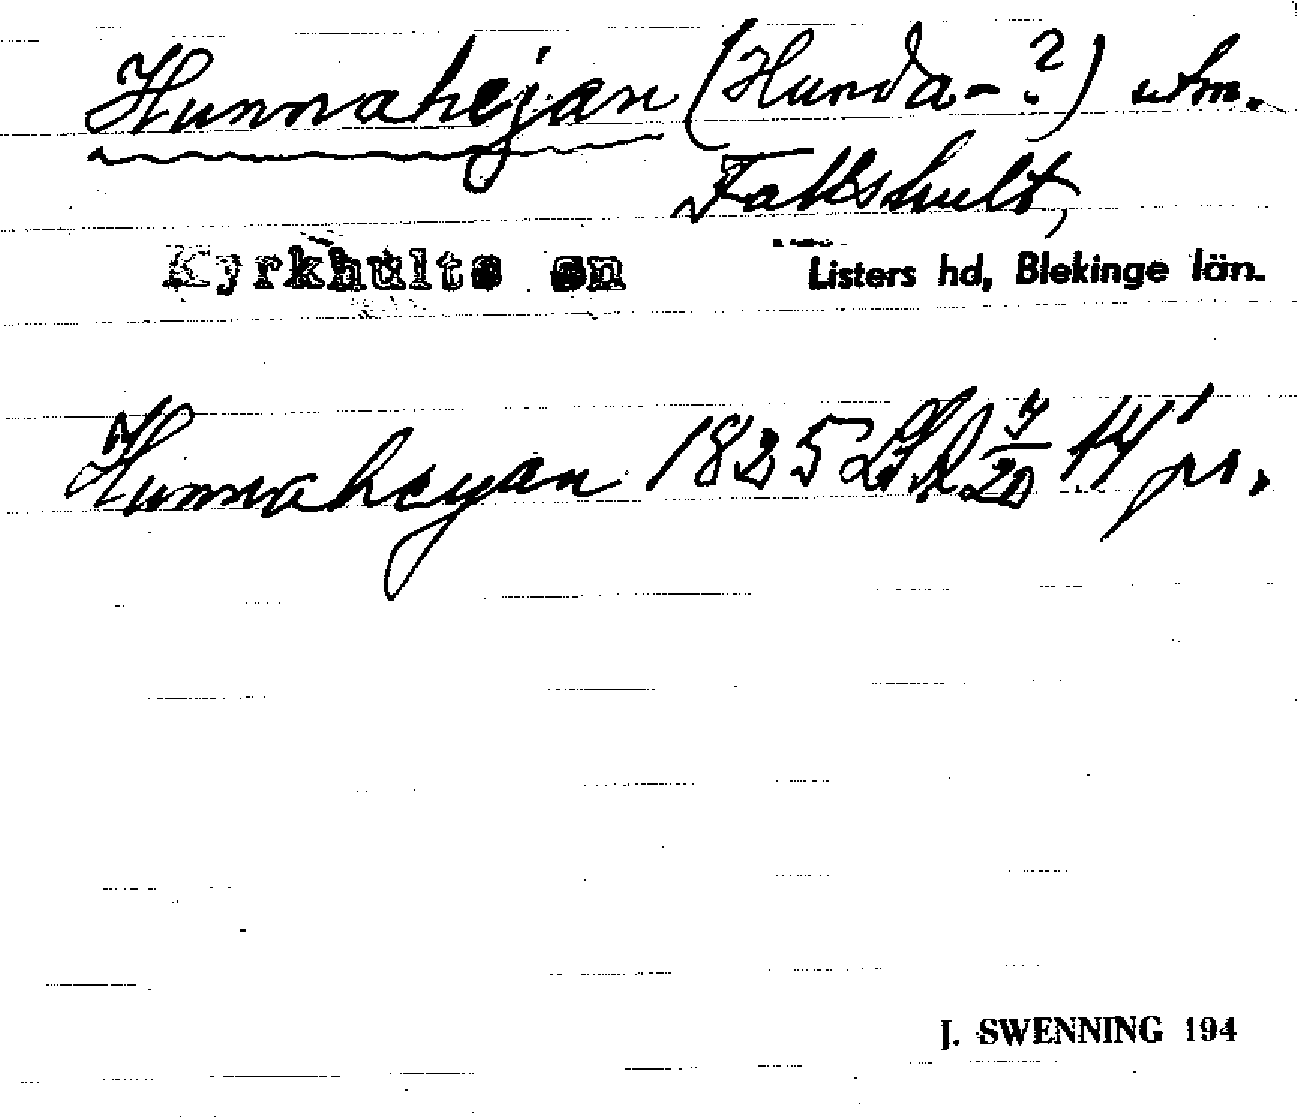 Hunnahejan (Hunda-?) utm.
Fallshult,
Kyrkhults sn Listers hd, Blekinge län.
Hunnaheyan 1825 7/20 14'
J. SWENNING 194